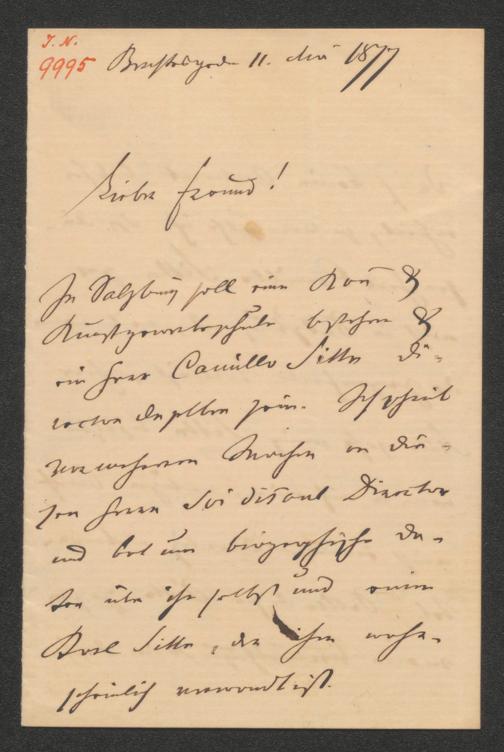 I. N.
9995
Berchtesgaden 11. Mai 1877
Lieber Freund!
In Salzburg soll eine Bau &
Kunstgewerbeschule bestehen &
ein Herr Camillo Sitte Di-
rector derselben sein. Ich schrieb
vor mehreren Wochen an die-
sen Herrn Soi disant Director
und bat um biografische Da-
ten über ihn selbst und einen
Sitte, der ihm wahr-
scheinlich verwandt ist.